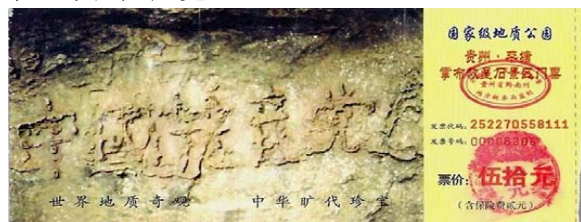 中國共产党
世界地质奇观 中华旷代珍宝
国家级地质公园
贵州·平塘
掌布救星石景区门票
贵州省黔南州
发票代码：252270558111
发票号码：00008306
票价：伍拾元
（含保险费贰元）